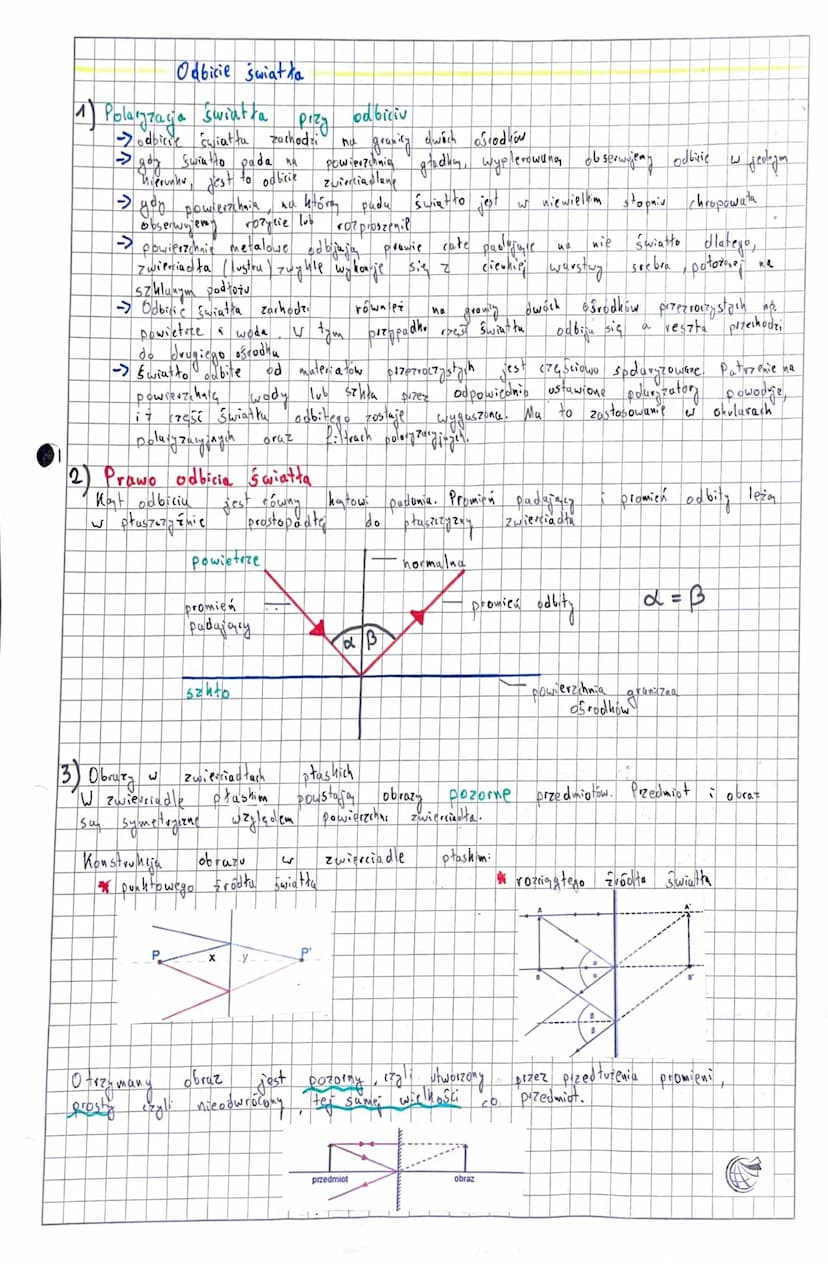 Odbicie światła
1) Polaryzacja światła przy odbiciu
→ odbicie światła zachodzi na granicy dwóch ośrodków
→ gdy światło pada na powierzchnią gładką, wypolerowaną obserwujemy odbicie w jednym
kierunku, jest to odbicie zwierciadlane
→ gdy powierzchnia, na którą pada światło jest w niewielkim stopniu chropowata
obserwujemy rozycie lub rozproszenie
→ powierzchnie metalowe odbijają prawie całe padające na nie światło dlatego,
zwierciadła (lustra) zwykle wykonuje się z cienkiej warstwy srebra, położonej na
szklanym podłożu
→ Odbicie światła zachodzi również na granicy dwóch ośrodków przezroczystych np.
powietrze i woda. W tym przypadku część światła odbija się a reszta przechodzi
do drugiego ośrodka
→ Światło odbite od materiałów przezroczystych jest częściowo spolaryzowane. Patrzenie na
powierzchnię wody lub szkła przez odpowiednio ustawione polaryzatory powoduje,
iż część światła odbitego zostaje wygaszona. Ma to zastosowanie w okularach
polaryzacyjnych oraz filtrach polaryzacyjnych.
2) Prawo odbicia światła
Kąt odbicia jest równy kątowi padania. Promień padający i promień odbity leżą
w płaszczyźnie prostopadłej do płaszczyzny zwierciadła
powietrze normalna
promień padający
promień odbity
α = β
α β
szkło
powierzchnia graniczna
ośrodków
3) Obrazy w zwierciadłach płaskich
W zwierciadle płaskim powstają obrazy pozorne przedmiotów. Przedmiot i obraz
są symetryczne względem powierzchni zwierciadła.
Konstrukcja obrazu w zwierciadle płaskim:
* punktowego źródła światła
* rozciągłego źródła światła
P x y P'
A A'
B B'
Otrzymany obraz jest pozorny, czyli utworzony przez przedłużenia promieni,
prosty czyli nieodwrócony, tej samej wielkości co przedmiot.
przedmiot obraz